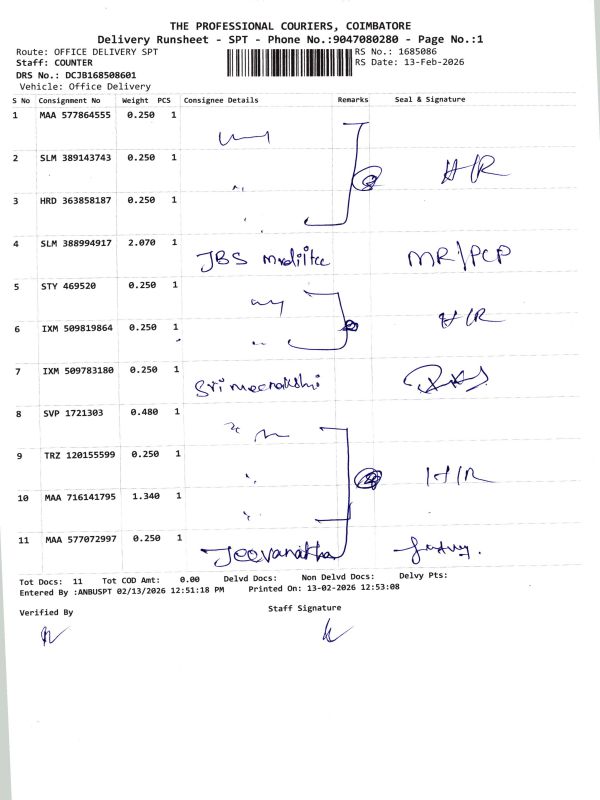 THE PROFESSIONAL COURIERS, COIMBATORE
Delivery Runsheet - SPT - Phone No.:9047080280 - Page No.:1
Route: OFFICE DELIVERY SPT RS No.: 1685086
Staff: COUNTER RS Date: 13-Feb-2026
DRS No.: DCJB168508601
Vehicle: Office Delivery
S No Consignment No Weight PCS Consignee Details Remarks Seal & Signature
1 MAA 577864555 0.250 1
2 SLM 389143743 0.250 1 H/R
3 HRD 363858187 0.250 1
4 SLM 388994917 2.070 1 JBS MR/PCP
5 STY 469520 0.250 1 H/R
6 IXM 509819864 0.250 1
7 IXM 509783180 0.250 1 Sri meenakshi
8 SVP 1721303 0.480 1
9 TRZ 120155599 0.250 1 H/R
10 MAA 716141795 1.340 1
11 MAA 577072997 0.250 1
Tot Docs: 11 Tot COD Amt: 0.00 Delvd Docs: Non Delvd Docs: Delvy Pts:
Entered By :ANBUSPT 02/13/2026 12:51:18 PM Printed On: 13-02-2026 12:53:08
Verified By Staff Signature